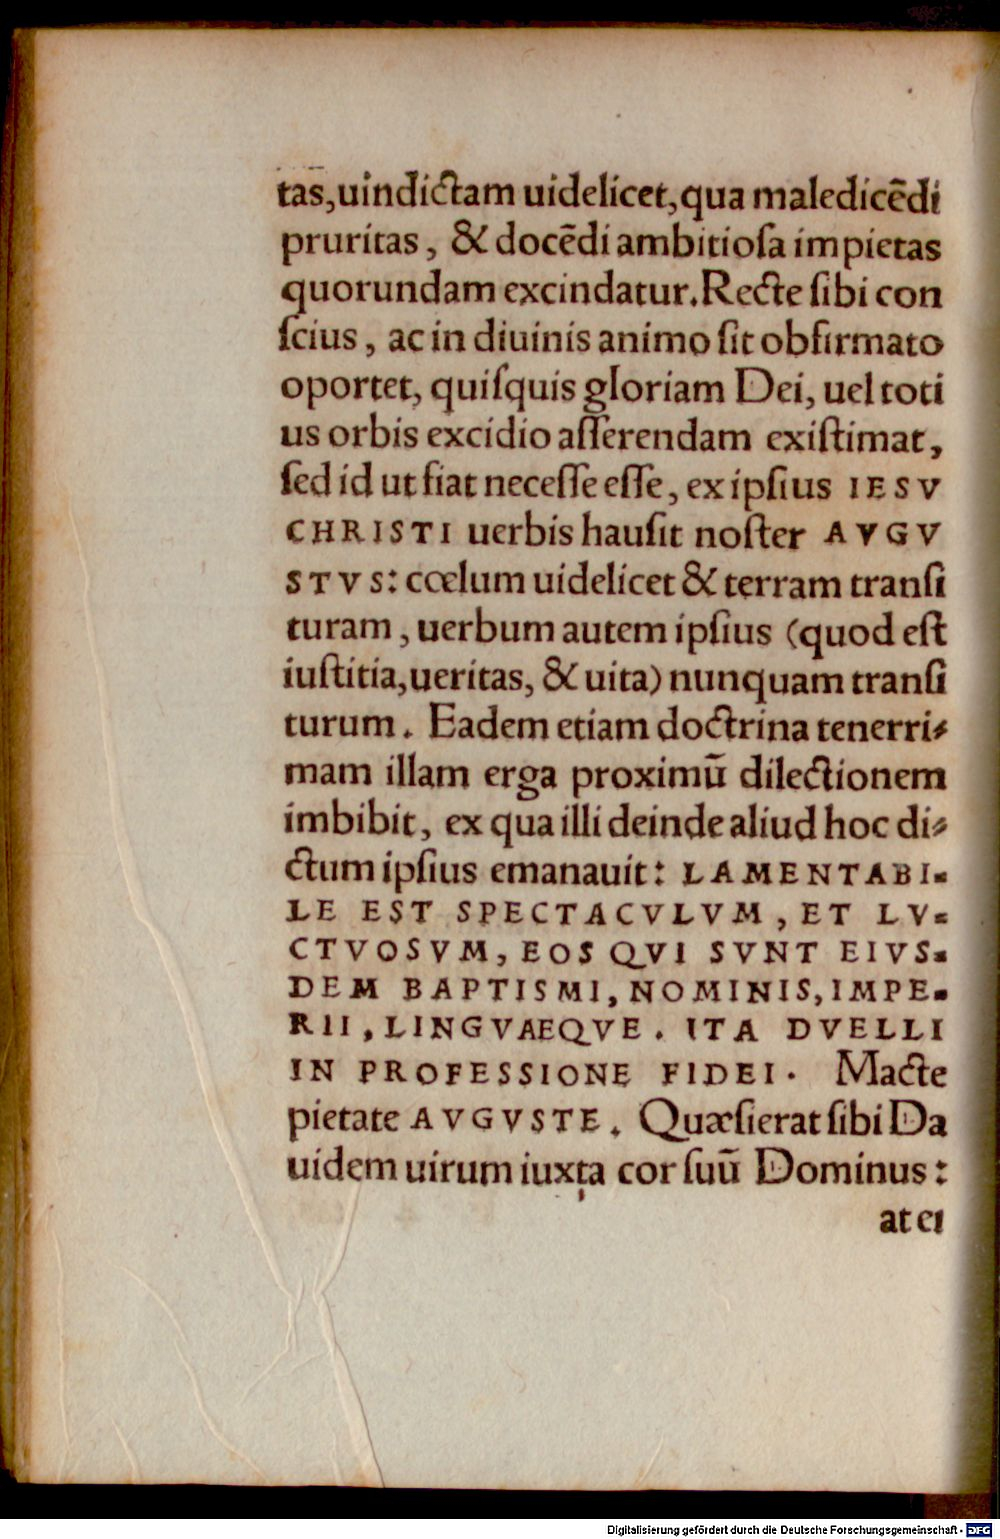 tas,uindictam uidelicet,qua maledicẽdi
pruritas, & docẽdi ambitioſa impietas
quorundam excindatur.Recte ſibi con
ſcius, ac in diuinis animo ſit obfirmato
oportet, quiſquis gloriam Dei, uel toti
us orbis excidio aſſerendam exiſtimat,
ſed id ut fiat neceſſe eſſe, ex ipſius IESV
CHRISTI uerbis hauſit noſter AVGV
STVS: cœlum uidelicet & terram tranſi
turam, uerbum autem ipſius (quod eſt
iuſtitia,ueritas, & uita) nunquam tranſi
turum. Eadem etiam doctrina tenerri⸗
mam illam erga proximũ dilectionem
imbibit, ex qua illi deinde aliud hoc di⸗
ctum ipſius emanauit: LAMENTABI⸗
LE EST SPECTACVLVM, ET LV⸗
CTVOSVM, EOS QVI SVNT EIVS⸗
DEM BAPTISMI, NOMINIS, IMPE⸗
RII, LINGVAEQVE. ITA DVELLI
IN PROFESSIONE FIDEI. Macte
pietate AVGVSTE. Quæſierat ſibi Da
uidem uirum iuxta cor ſuũ Dominus:
at ei
Digitalisierung gefördert durch die Deutsche Forschungsgemeinschaft - DFG